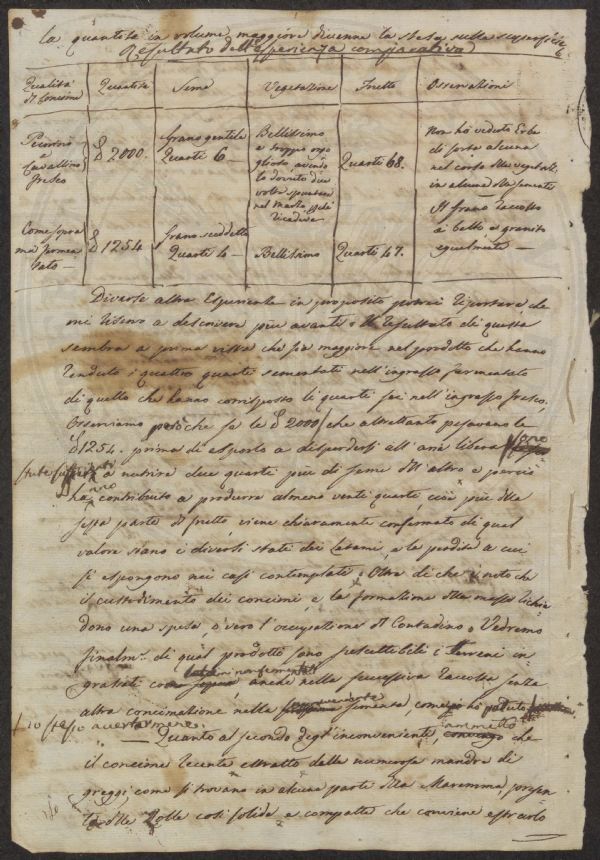 la quantità in volume maggiore divenne la stesa sulla superficie
Resultato dell'Esperienza comparativa
Qualità di Concime | Quantità | Seme | Vegetazione | Frutto | Osservazioni
Pecorino e Cavallino fresco | £ 2000. | grano gentile Quarti 6 — | Bellissimo e troppo orgoglioso avendo lo dovuto due volte spuntare nel Marzo | Quarti 68. | Non hò veduto Erbe di sorta alcuna nel corso della vegetaz: in alcuna delle semente
Come sopra mà fermentato — | £ 1254 | grano suddetto Quarti 4 — | Bellissimo | Quarti 47. | Il grano raccolto è bello, e granito egualmente —
Diverse altre Esperienze in proposito potrei riportare, che
mi riserbo a descrivere più avanti. Il resultato di questa
sembra a prima vista che sia maggiore nel prodotto che hanno
renduto i quattro quarti sementati nell'ingrasso fermentato
di quello che hanno corrisposto li quarti sei nell'ingrasso fresco,
Osserviamo però che se le £ 2000 / che altrettanto pesavano le
£ 1254. prima di esporlo a disperdersi all'aria libera
a nutrire due quarti più di seme dell'altro e perciò
hanno contribuito a produrre almeno venti quarti, cioè più della
sesta parte di frutto, viene chiaramente confermato di qual
valore siano i diversi stati dei Letami, e le perdite a cui
si espongono nei casi contemplati. Oltre di che è noto che
il custodimento dei concimi, e la formazione della massa richie
dono una spesa, o vero l'occupazione del Contadino. Vedremo
finalm.e di qual prodotto sono suscettibili i terreni in
grassati con letami non fermentati anche nella successiva raccolta senza
altra concimazione nella sementa, come io hò potuto
io stesso avvertirmene.
— Quanto al secondo degl'inconvenienti, ammetto che
il concime recente estratto dalle numerose mandre di
greggi, come si trovano in alcune parti della Maremma, presen
ta delle zolle così solide, e compatte che conviene